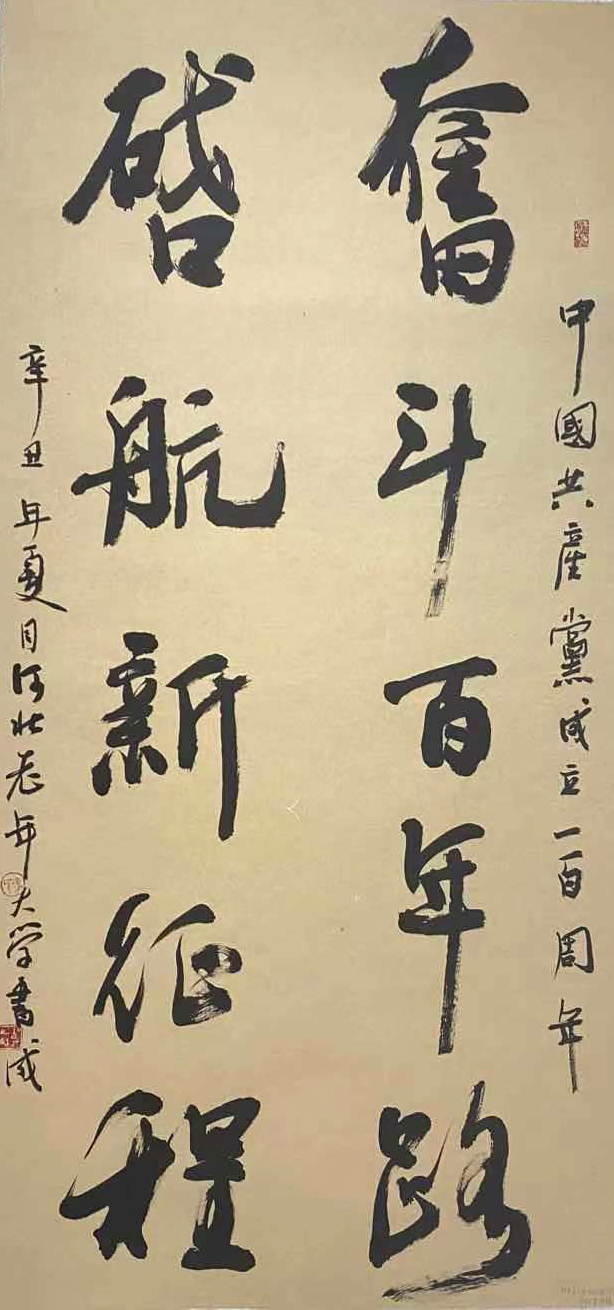 中國共產黨成立一百周年
奮斗百年路
啓航新征程
辛丑年夏月河北老年大学書成